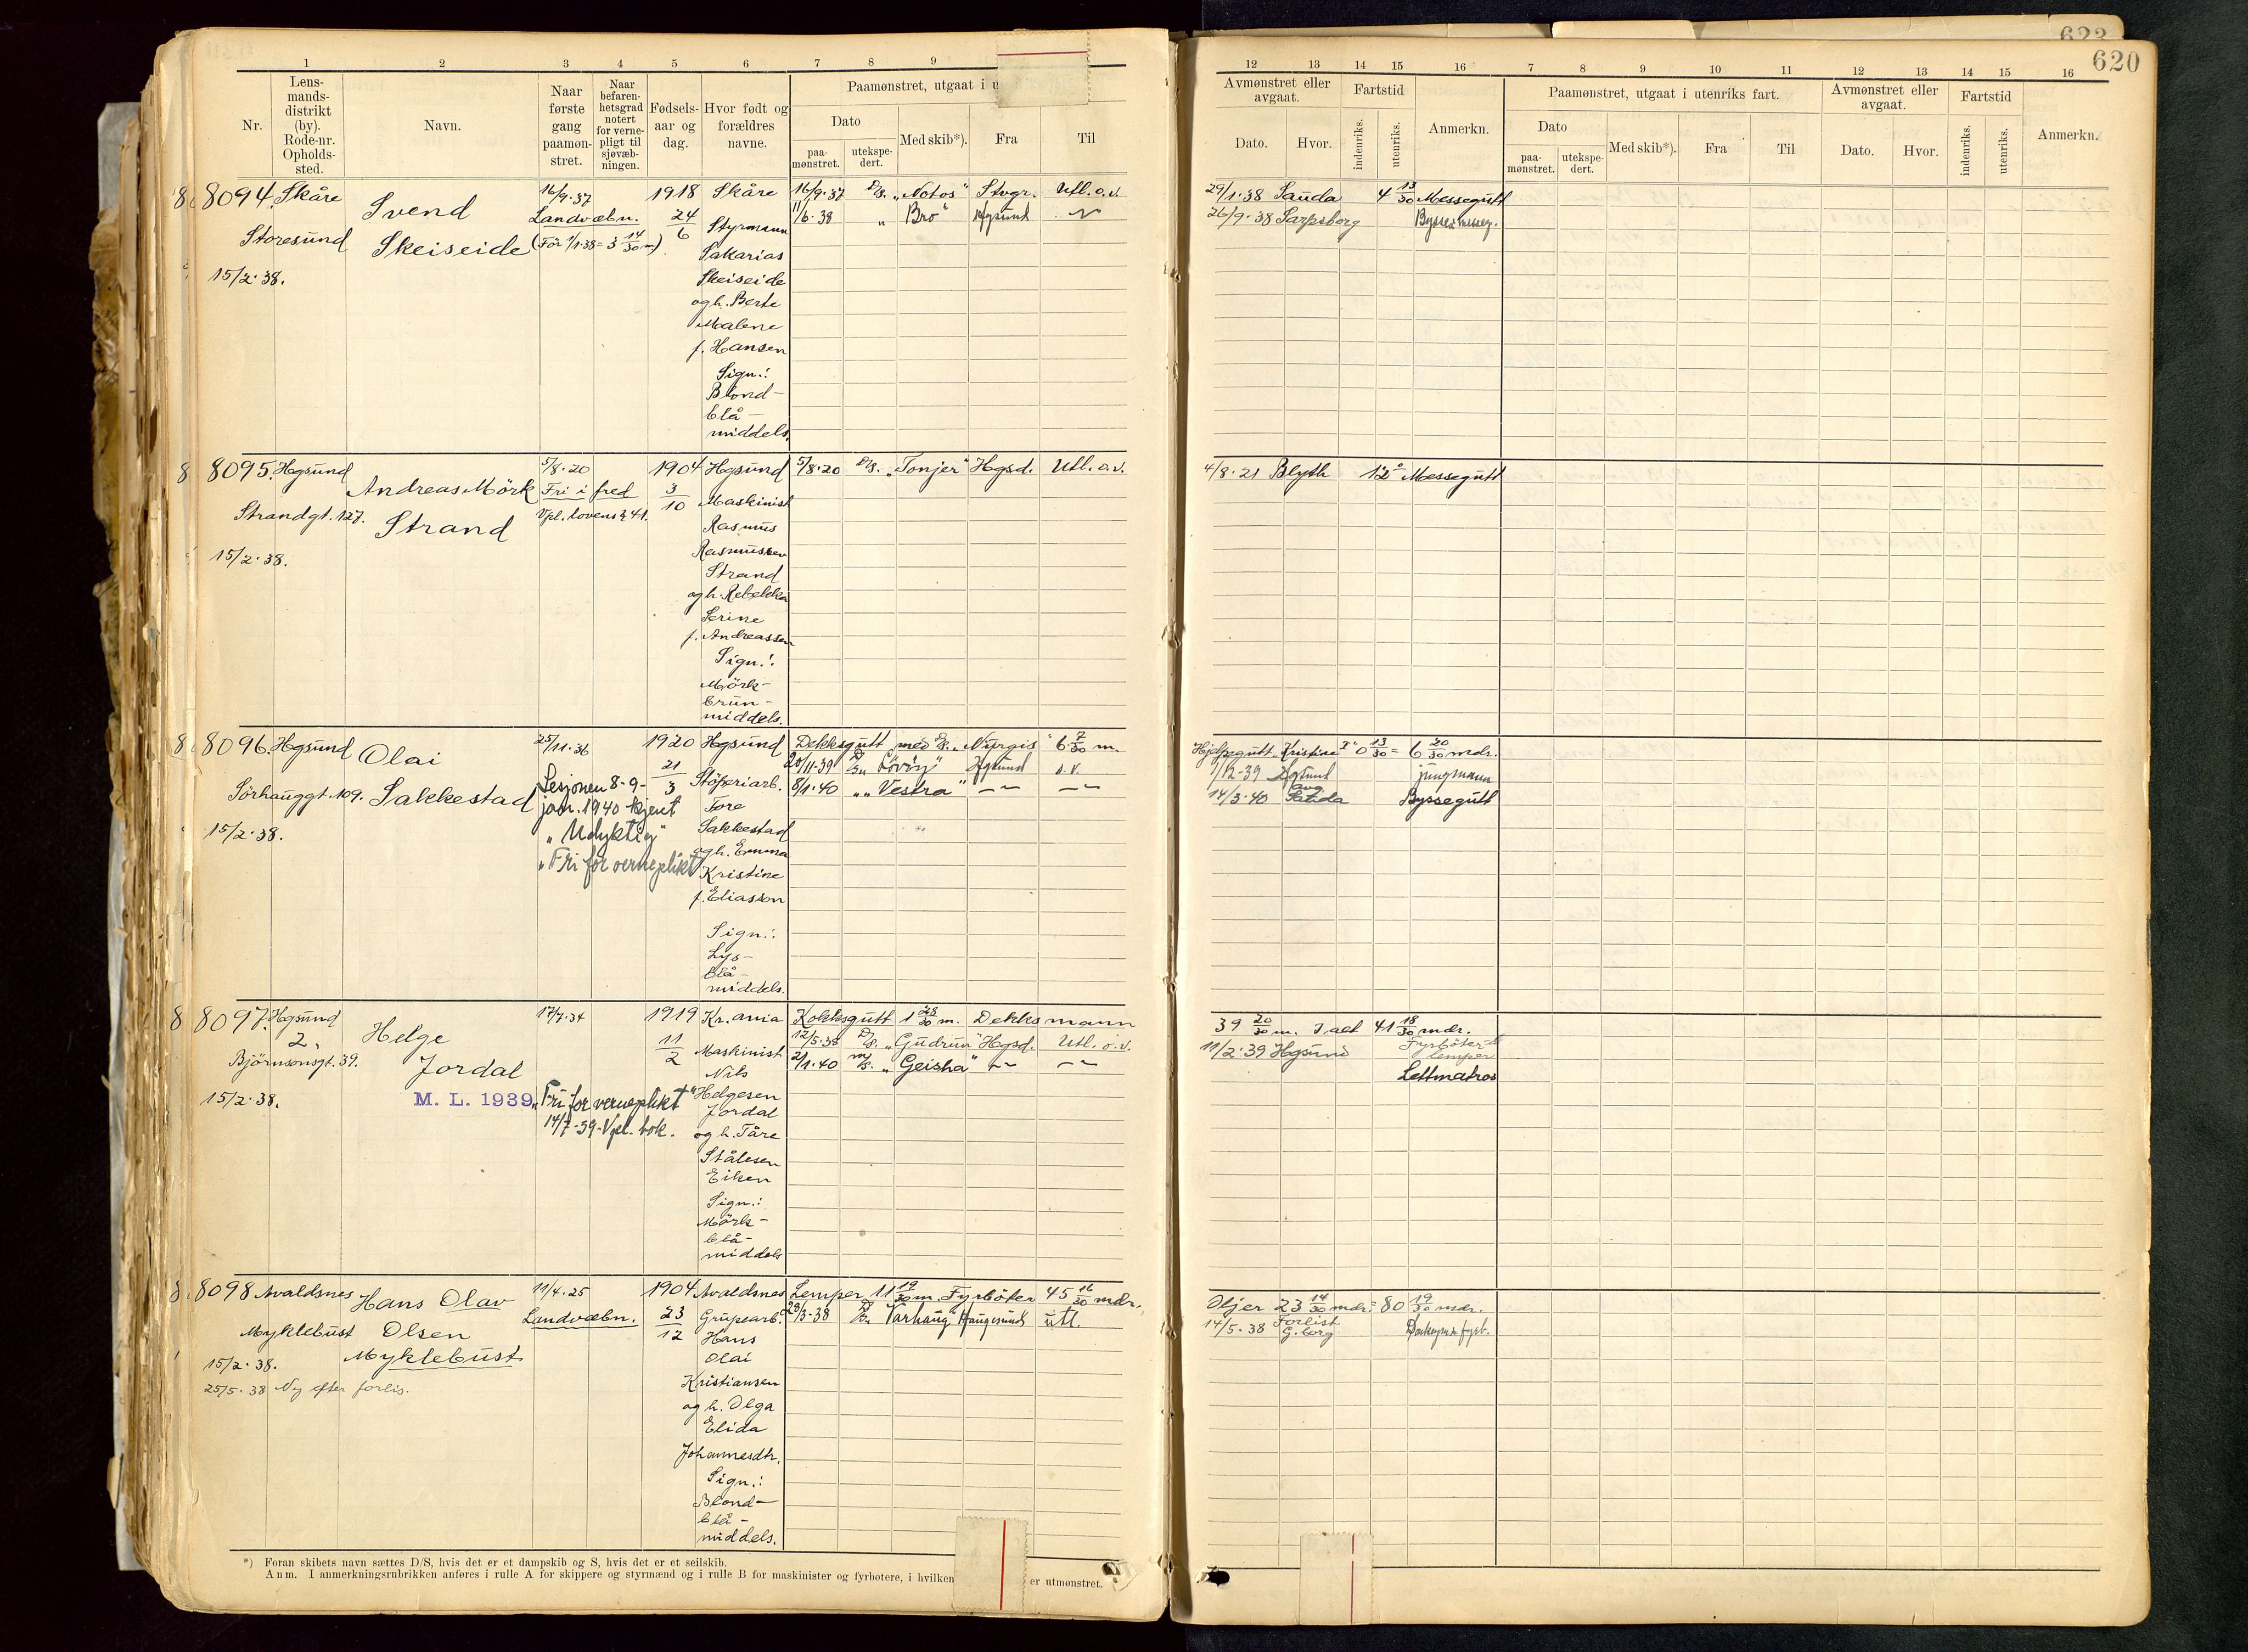 623
620
1 2 3 4 5 6 7 8 9
Nr.
Lens-
mands-
distrikt
(by).
Rode-nr.
Opholds-
sted.
Navn.
Naar
første
gang
paamøn-
stret.
Naar
befaren-
hetsgrad
notert
for verne-
pligt til
sjøvæb-
ningen.
Fødsels-
aar og
dag.
Hvor født og
forældres
navne.
Paamønstret, utgaat i u
Dato
paa-
mønstret.
utekspe-
dert.
Med skib*).
Fra
Til
12 13 14 15 16 7 8 9 10 11 12 13 14 15 16
Avmønstret eller
avgaat.
Dato.
Hvor.
Fartstid
indenriks.
utenriks.
Anmerkn.
Paamønstret, utgaat i utenriks fart.
Dato
paa-
mønstret.
utekspe-
dert.
Med skib*).
Fra
Til
Avmønstret eller
avgaat.
Dato.
Hvor.
Fartstid
indenriks.
utenriks.
Anmerkn.
8094. Skåre
Storesund
15/2.38.
Svend
Skeiseide
16/9.37
Landvæbn.
(Før 1/1.38 = 3 14/30 m)
1918
24
6
Skåre
Styrmann
Sakarias
Skeiseide
og h. Berte
Malene
f. Hansen
Sign.:
Blond-
blå-
middels.
16/9.37 D/S. „Notos" Stvgr. Utl. o.v.
11/6.38 „ Bro" Hgsund
29/1.38 Sauda 4 13/30 Messegutt
26/9.38 Sarpsborg
8095. Hgsund
Strandgt. 127.
15/2.38.
Andreas Mörk
Strand
5/8.20
Fri i fred
Vpl. lovens § 41.
1904
3
10
Hgsund
Maskinist
Rasmus
Rasmussen
Strand
og h. Rebekka
Serine
f. Andreassen
Sign.:
Mörk-
brun-
middels.
5/8.20 D/S. „Tonjer" Hgsd. Utl. o.v.
4/8.21 Blyth 12 Messegutt
8096. Hgsund
Sörhauggt. 109.
15/2.38.
Olai
Sakkestad
25/11.36
Sesjonen 8-9-
jan. 1940 kjent
„Udyktig"
„Fri for verneplikt
1920
21
3
Hgsund
Støperiarb.
Tore
Sakkestad
og h. Emma
Kristine
f. Eliasson
Sign.:
Lys-
blå-
middels.
Dekksgutt med D/S. „Nyrgis" 6 7/30 m.
11-39 Hgsund o.v.
8/1.40 „ „Vestra"
Hjelpegutt „Kristine I" 0 13/30 = 6 20/30 mdr.
1/12-39 Hgsund jungmann
14/3.40 Sauda Byssegutt
8097. Hgsund
2,
Björnsonsgt. 39.
15/2.38.
Helge
Jordal
M. L. 1939
17/7.34
„Fri for verneplikt"
14/7-39-Vpl. bok.
1919
11
2
Kr.ania
Maskinist
Nils
Helgesen
Jordal
og h. Tåre
Stålesen
Eiken
Sign.:
Mörk-
blå-
middels
Kokksgutt 1 28/30 m. Dekksmann
12/5.38 D/S. „Gudrun" Hgsd. Utl. o.v.
2/1.40 M/S. „Geisha"
39 20/30 m. I alt 41 18/30 mdr.
11/2.39 Hgsund Fyrböter
lemper
Lettmatros
8098 Avaldsnes
Myklebust
15/2.38.
25/5.38 Ny efter forlis.
Hans Olav
Olsen
Myklebust
11/4.25
Landvæbn.
1904
23
12
Avaldsnes
Grupearb.
Hans
Olai
Kristiansen
og h. Olga
Elida
Johannesdtr.
Sign.:
Blond-
blå-
middels.
Lemper 11 19/30 m. Fyrböter 45 16/30 mdr.
29/3.38 D/S. „Varhaug" Haugesund utl.
Oljer 23 14/30 mdr. = 80 19/30 mdr.
14/5.38 Forlist
G.borg
*) Foran skibets navn sættes D/S, hvis det er et dampskib og S, hvis det er et seilskib.
Anm. I anmerkningsrubrikken anføres i rulle A for skippere og styrmænd og i rulle B for maskinister og fyrbøtere, i hvilken er utmønstret.